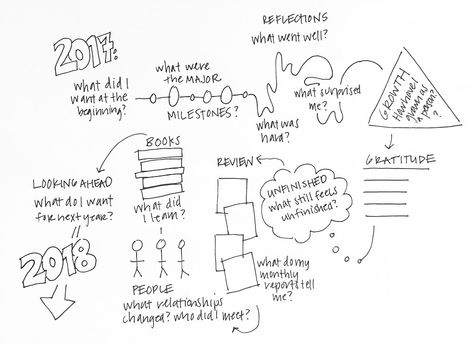 2017:
what did I
want at the
beginning?
what were
the MAJOR
MILESTONES?
REFLECTIONS
what went well?
what was
hard?
what surprised
me?
GROWTH
How have I
grown as
a person?
GRATITUDE
UNFINISHED
what still feels
unfinished?
REVIEW
what do my
monthly
reports tell
me?
BOOKS
what did
I learn?
PEOPLE
what relationships
changed? who did I meet?
LOOKING AHEAD
what do I want
for next year?
2018